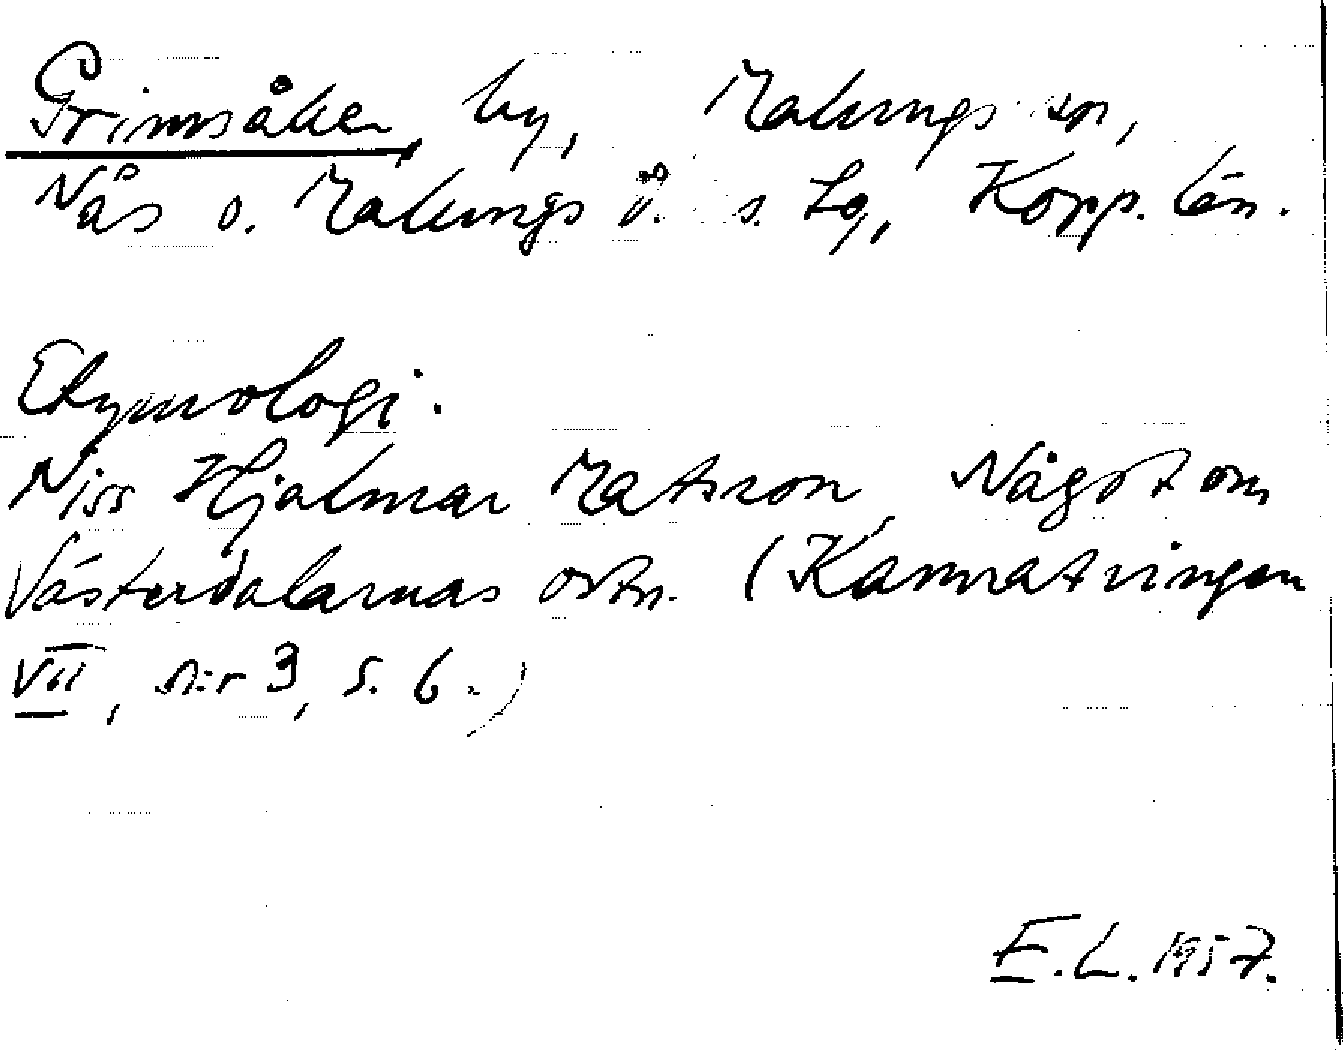 Grimsåker, by, Malungs sn,
Nås o. Malungs ö. s. tg, Kopp. län.
Etymologi.
Niss Hjalmar Matsson Något om
Västerdalarnas ortn. (Kammatvingen
VII, n:r 3, s. 6.)
E.L. 1957.